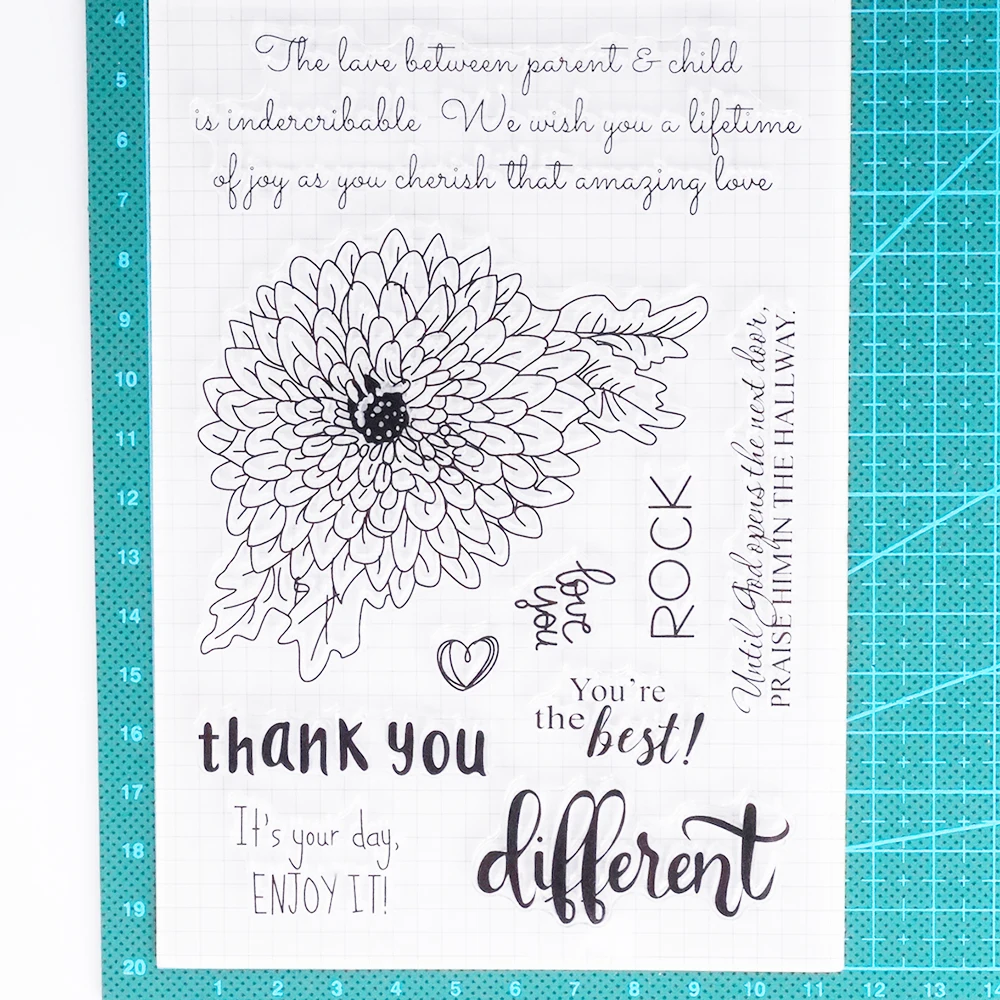 The lave between parent & child
is indercribable We wish you a lifetime
of joy as you cherish that amazing love
Until God opens the next door,
PRAISE HIM IN THE HALLWAY.
ROCK
love
you
You're
the best!
thank you
It's your day,
ENJOY IT!
different
4
5
6
7
8
9
10
11
12
13
14
15
16
17
18
19
20
1
2
3
4
5
6
7
8
9
10
11
12
13